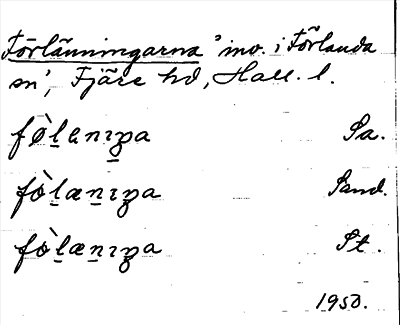 Förlänningarna "inv. i Förlanda
sn", Fjäre hd, Hall. l.
fø̀lenıŋa Sa.
fòlænıŋa Sand.
fòlænıŋa St.
1950.